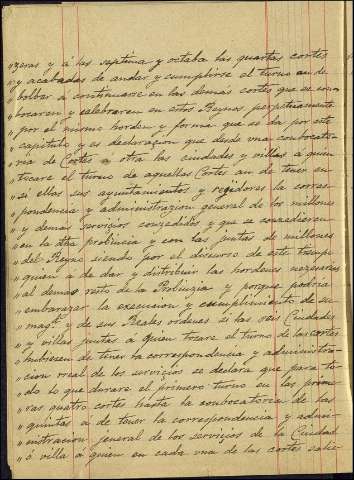 " zeras y á las septima y octaba las quartas cortes
" y acabadas de andar y cumplirse el turno an de
" bolber a continuarse en las demás cortes que se com
" bocaren y celebraren en estos Reynos perpetuamente
" por el mismo horden y forma que se da por este
" capitulo y es declaracion que desde vna conbocato-
" ria de Cortes a otra las ciudades y villas á quien
" tocare el turno de aquellas Cortes an de tener en
" si ellas sus ayuntamientos y regidores la corres-
" pondencia y administrazion general de los millones
" y demas servicios conzedidos y que se concedieren
" en la dha probincia y con las juntas de millones
" del Reyno siendo por el discurso de este tiempo
" quien a de dar y distribuir las hordenes nezesarias
" al demas resto de la Probinzia y porque podria
" embarazar la execucion y cumplimiento de su
" magd. y de sus Reales ordenes si las seis Ciudades
" y villas juntas á quien tocare el turno de las cortes
" hubiesen de tener la correspondencia y administra-
" cion rreal de los servicios se declara que para to-
" do lo que durare el primero turno en las prime-
" ras quatro cortes hasta la conbocatoria de las
" quintas a de tener la correspondencia y admi-
" nistracion general de los servicios de la Ciudad
" ó villa a quien en cada vna de las cortes salie